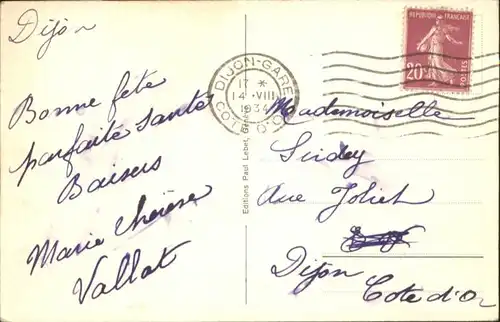 Dijon
Bonne fête
parfaite santé
Baisers
Marie thérèse
Vallat
Editions Paul Lebet,
REPUBLIQUE FRANÇAISE
POSTES
20c
DIJON-GARE
17 *
14 -VIII
1934
COTE D'OR
Mademoiselle
rue Joliet
Dijon
Cote d'Or